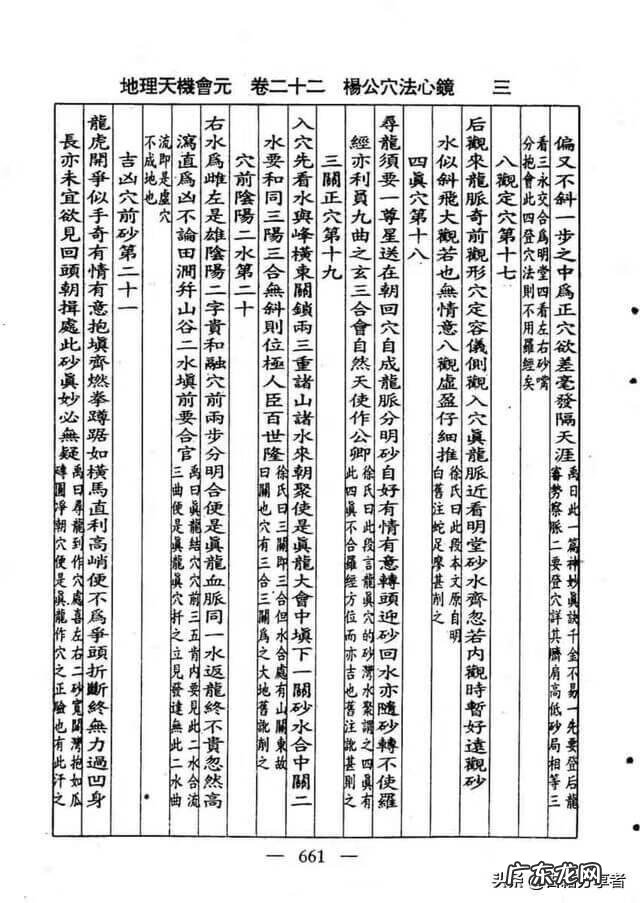 地理天機會元　卷二十二　楊公穴法心鏡　三
偏又不斜一步之中爲正穴欲差毫發隔天涯禹曰此一篇神妙眞訣千金不易一先要登后龍審勢察脈二要登穴詳其臍肩高低砂局相等三
看三永交合爲明堂四看左右砂嘴分抱會此四登穴法則不用羅經矣
八觀定穴第十七
后觀來龍脈奇前觀形穴定容儀側觀入穴眞龍脈近看明堂砂水齊忽若內觀時暫好遠觀砂
水似斜飛大觀若也無情意八觀虛盈仔細推徐氏曰此段本文原自明白舊注蛇足廖甚削之
四眞穴第十八
尋龍須要一尊星送在朝回穴自成龍脈分明砂自好有情有意轉頭迎砂回水亦隨砂轉不使羅
經亦利員九曲之玄三合會自然天使作公卿徐氏曰此段言龍眞穴的砂灣水聚謂之四眞有此四眞不合羅經方位而亦吉也舊注說甚削之
三關正穴第十九
入穴先看水與峰橫東關鎖兩三重諸山諸水來朝聚使是眞龍大會中塡下一關砂水合中關二
水要和同三陽三合無斜則位極人臣百世隆徐氏曰三關即三合但水合處有山關東故曰關也穴有三合三關爲之大地舊說削之
穴前陰陽二水第二十
右水爲雌左是雄陰陽二字貴和融穴前兩步分明合便是眞龍血脈同一水返龍終不貴忽然高
瀉直爲凶不論田澗幷山谷二水塡前要合官禹曰眞龍結穴穴前三五肯内要見此二水合流三曲便是眞龍穴扦之立見發達無此二水曲
流即是虛穴不成地也
吉凶穴前砂第二十一
龍虎開爭似手奇有情有意抱塡齊燃拳蹲踞如橫馬直利高峭便不爲爭頭折斷終無力過凹身
長亦未宜欲見回頭朝揖處此砂眞妙必無疑禹曰尋龍到作穴處喜左右二砂寬闊灣抱如瓜磚圓淨朝穴便是眞龍作穴之正驗也有此汗之
— 661 —